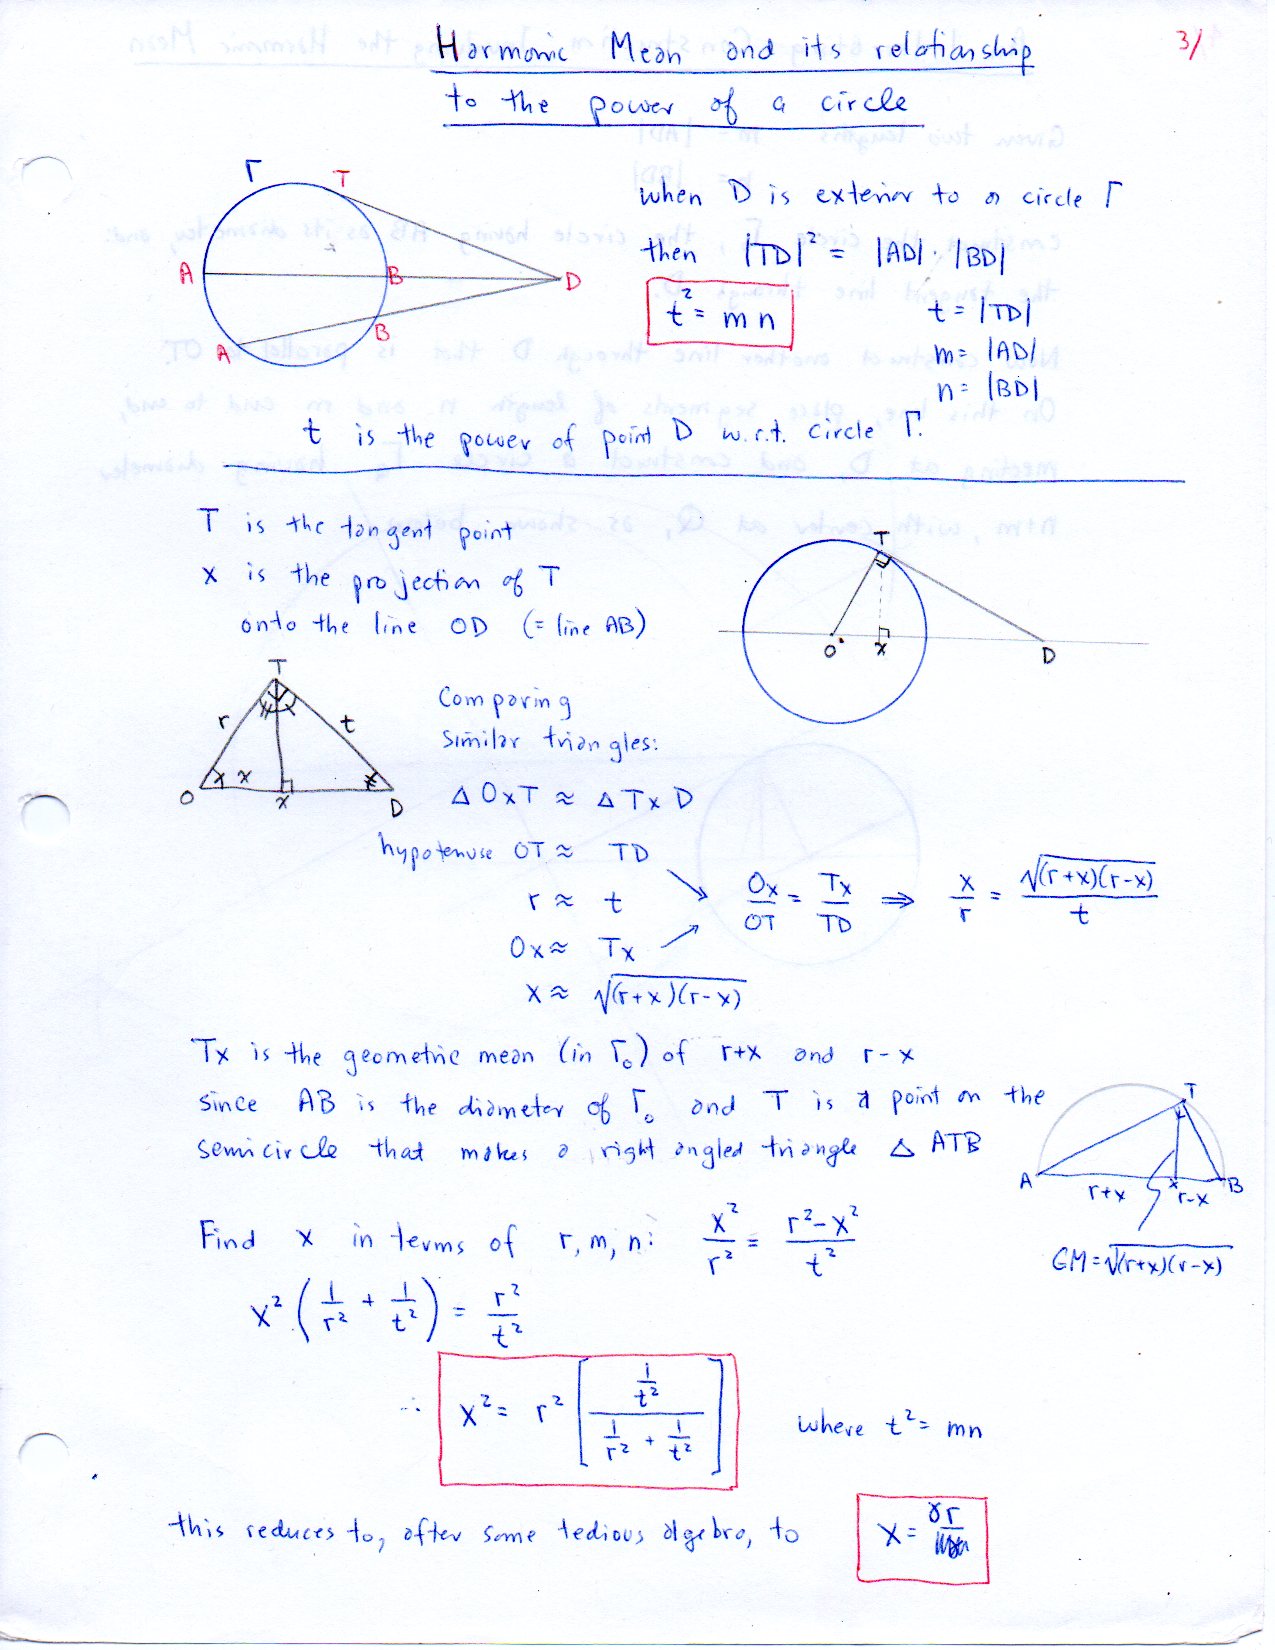 Harmonic Mean and its relationship
to the power of a circle
3/
Γ
T
A
B
D
B
A
when D is exterior to a circle Γ
then |TD|² = |AD|·|BD|
t² = mn
t = |TD|
m = |AD|
n = |BD|
t is the power of point D w.r.t. circle Γ.
T is the tangent point
x is the projection of T
onto the line OD (= line AB)
T
O
x
D
T
r
t
x
O
x
D
Comparing
similar triangles:
△ OxT ≈ △ TxD
hypotenuse OT ≈ TD
r ≈ t
Ox ≈ Tx
x ≈ √(r+x)(r-x)
Ox/OT = Tx/TD ⇒ x/r = √(r+x)(r-x)/t
Tx is the geometric mean (in Γ₀) of r+x and r-x
since AB is the diameter of Γ₀ and T is a point on the
semicircle that makes a right angled triangle △ ATB
T
A
r+x
x
r-x
B
GM = √(r+x)(r-x)
Find x in terms of r, m, n: x²/r² = r²-x²/t²
x² (1/r² + 1/t²) = r²/t²
∴ x² = r² [ 1/t² / 1/r² + 1/t² ] where t² = mn
this reduces to, after some tedious algebra, to
x = γr/